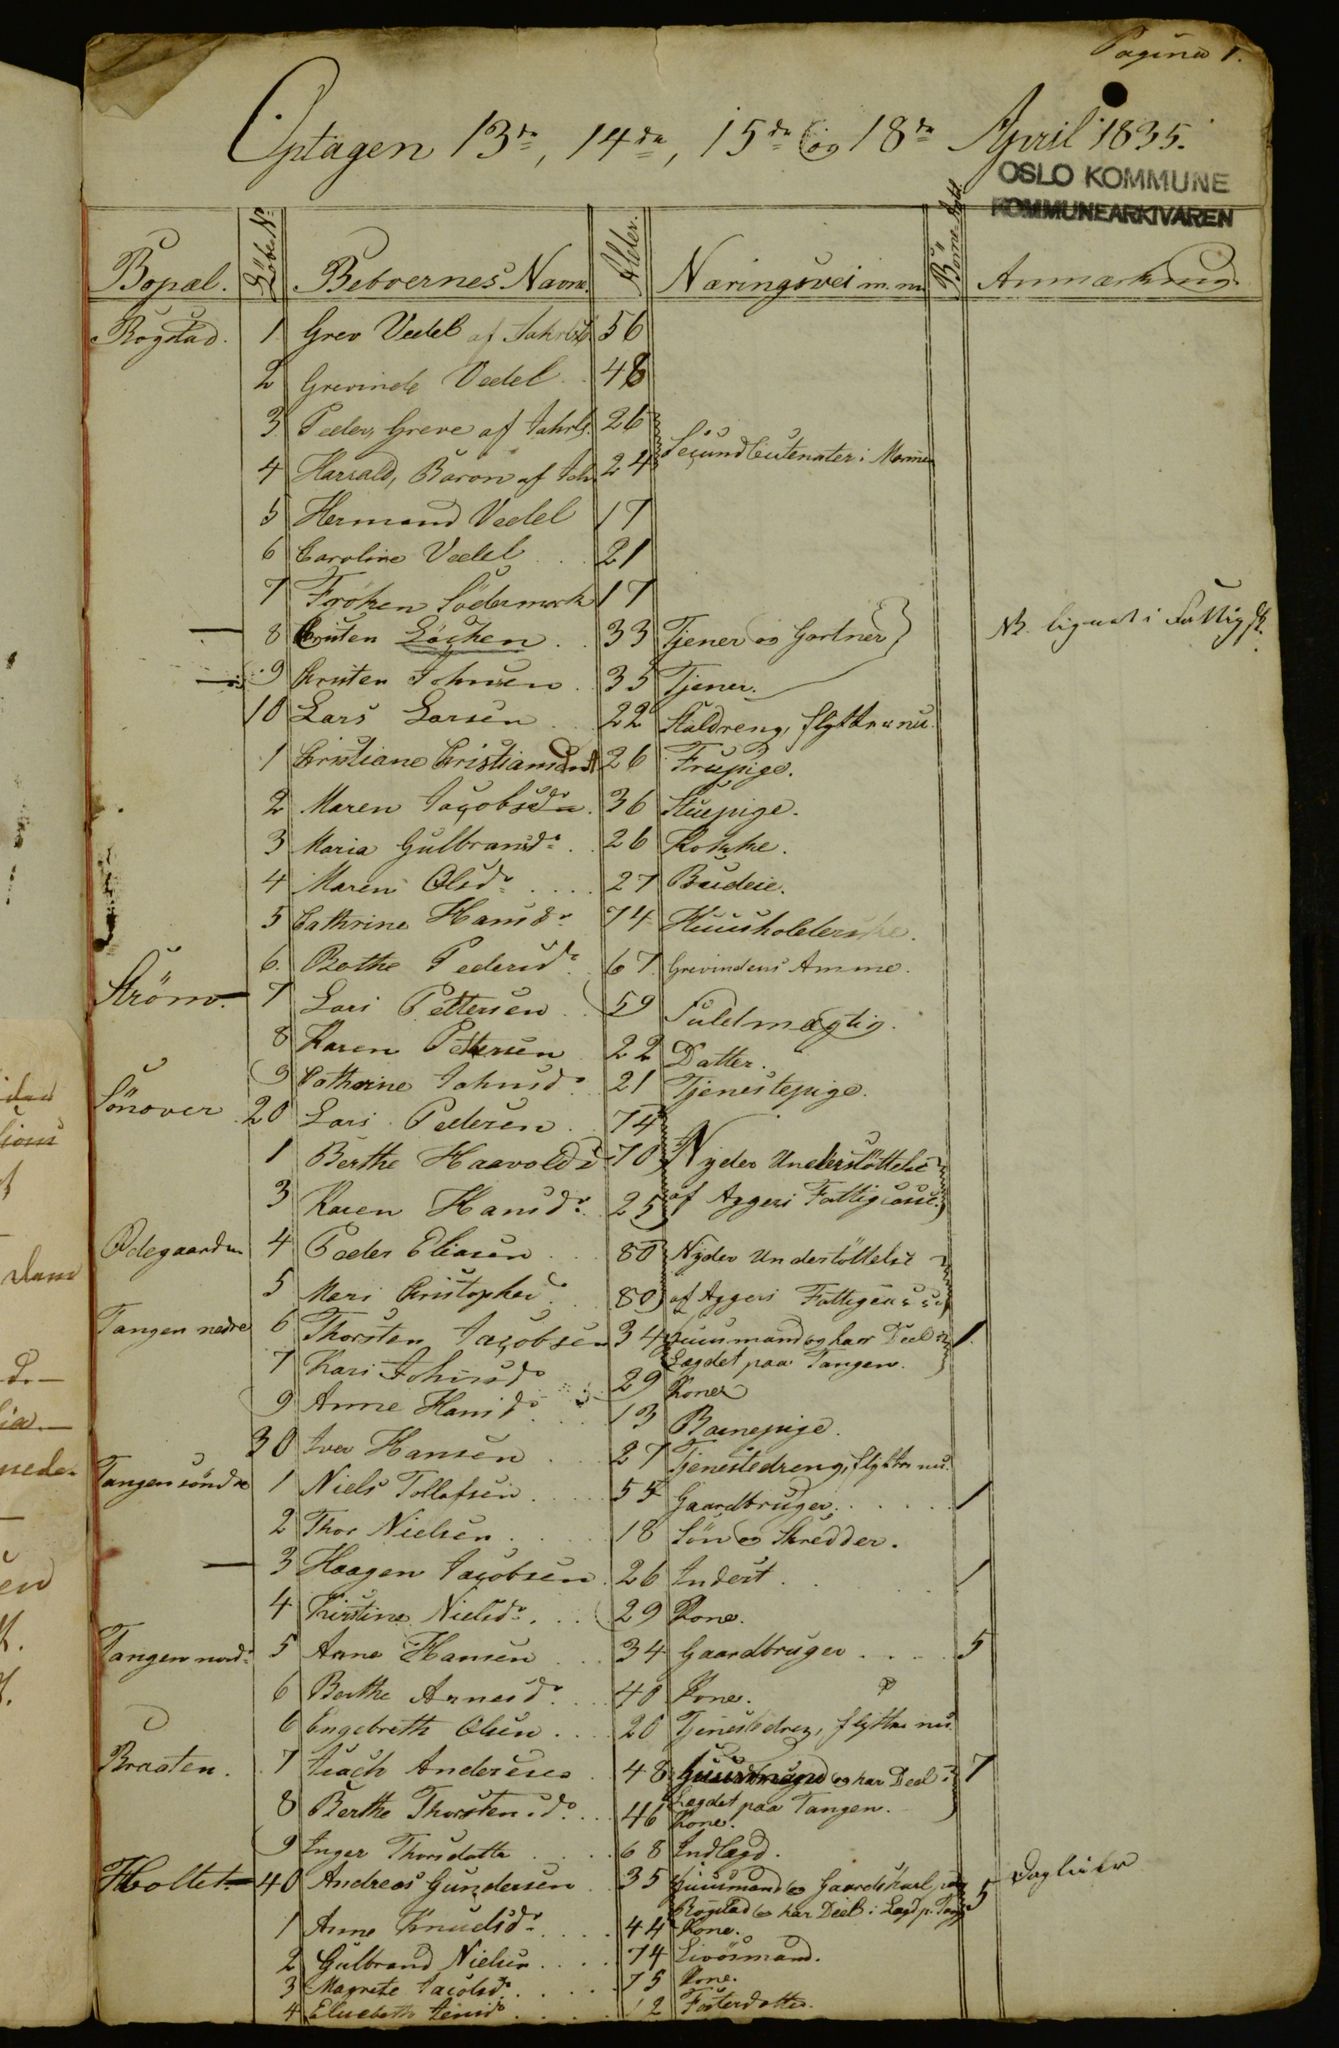 Pagina 1.
Optagen 13de, 14de, 15de og 18de April 1835.
OSLO KOMMUNE
KOMMUNEARKIVAREN
Bopæl. Löbe No Beboernes Navne. Alder. Næringsvei m. m. Börne Anmærkning
Bogstad. 1 Grev Vedel af Jahrlsb 56
2 Grevinde Vedel 48
3 Peder, Greve af Jahrlsb. 26
Secundlieutenater i Marinen
4 Harrald, Baron af Jah 24
5 Hermand Vedel 17
6 Caroline Vedel 21
7 Fröken Södermark 17
8 Cristen Löchen 33 Tjener og Gartner
9 Christen Johnsen 35 Tjener.
10 Lars Larsen 22 Staldreng, flytter nu.
1 Christiane Christiansdatt 26 Frupige.
2 Maren Jacobsdr 36 Stuepige.
3 Maria Gulbransdr 26 Kokke.
4 Maren Olsdr 27 Budeie.
5 Cathrine Hansdr 74 Huusholderske.
6 Berthe Pedersdr 67 Grevindens Amme.
Ström. 7 Lars Pettersen 59 Fuldmægtig.
8 Karen Pettersen 22 Datter.
9 Catharine Johnsdr 21 Tjenestepige.
Sönover 20 Lars Pedersen 74
1 Berthe Haavoldsd 70 Nyder Understöttelse
3 Karen Hansdr 25 af Aggers Fattigcasse.
Ödegaarden 4 Peder Eliasen 80 Nyder Understöttelse
5 Mari Christophersd 80 af Aggers Fattigcasse
Tangen nedre 6 Thorsten Jacobsen 34 Huusmand og har Deel i 1.
Lægdet paa Tangen.
7 Kari Johnsdr 29 Kone
9 Anne Hansdr 13 Barnepige.
30 Iver Hansen 27 Tjenestedreng, flytter nu.
Tangen söndre 1 Niels Tollefsen 55 Gaardbruger 1
2 Thor Nielsen 18 Sön og Skredder.
3 Haagen Jacobsen 26 Inderst 1
4 Kirstine Nielsdr 29 Kone.
Tangen nord 5 Arne Hansen 34 Gaardbruger 5
6 Berthe Arnesdr 40 Kone.
6 Engebreth Olsen 20 Tjenestedreng, flytter nu.
Braaten. 7 Isach Andersen 48 Huusmand og har Deel i 7
Lægdet paa Tangen.
8 Berthe Thorstensdr 46 Kone.
9 Inger Thorsdatter 68 Indlægd.
Holtet 40 Andreas Gundersen 35 Huusmand og Gaardskarl paa 5
Bogstad og har Deel i Lægd p. Tang
1 Anne Knudsdr 44 Kone.
2 Gulbrand Nielsen 74 Livösmand.
3 Magrete Jacobsdr 75 Kone.
4 Elisebeth Jensdr 12 Fosterdatter.